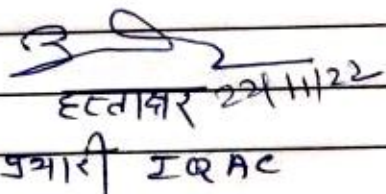 हस्ताक्षर 22/11/22
प्रभारी IQAC